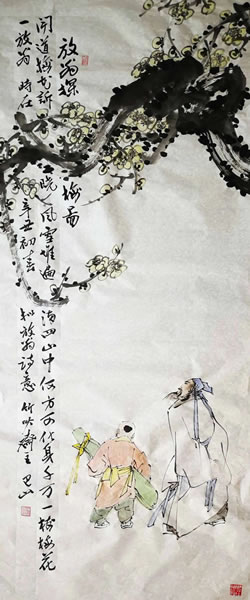 放翁探梅图
闻道梅花坼晓风雪堆遍满四山中何方可化身千万一树梅花
一放翁 时在辛丑初春 放翁诗意 竹吟斋主